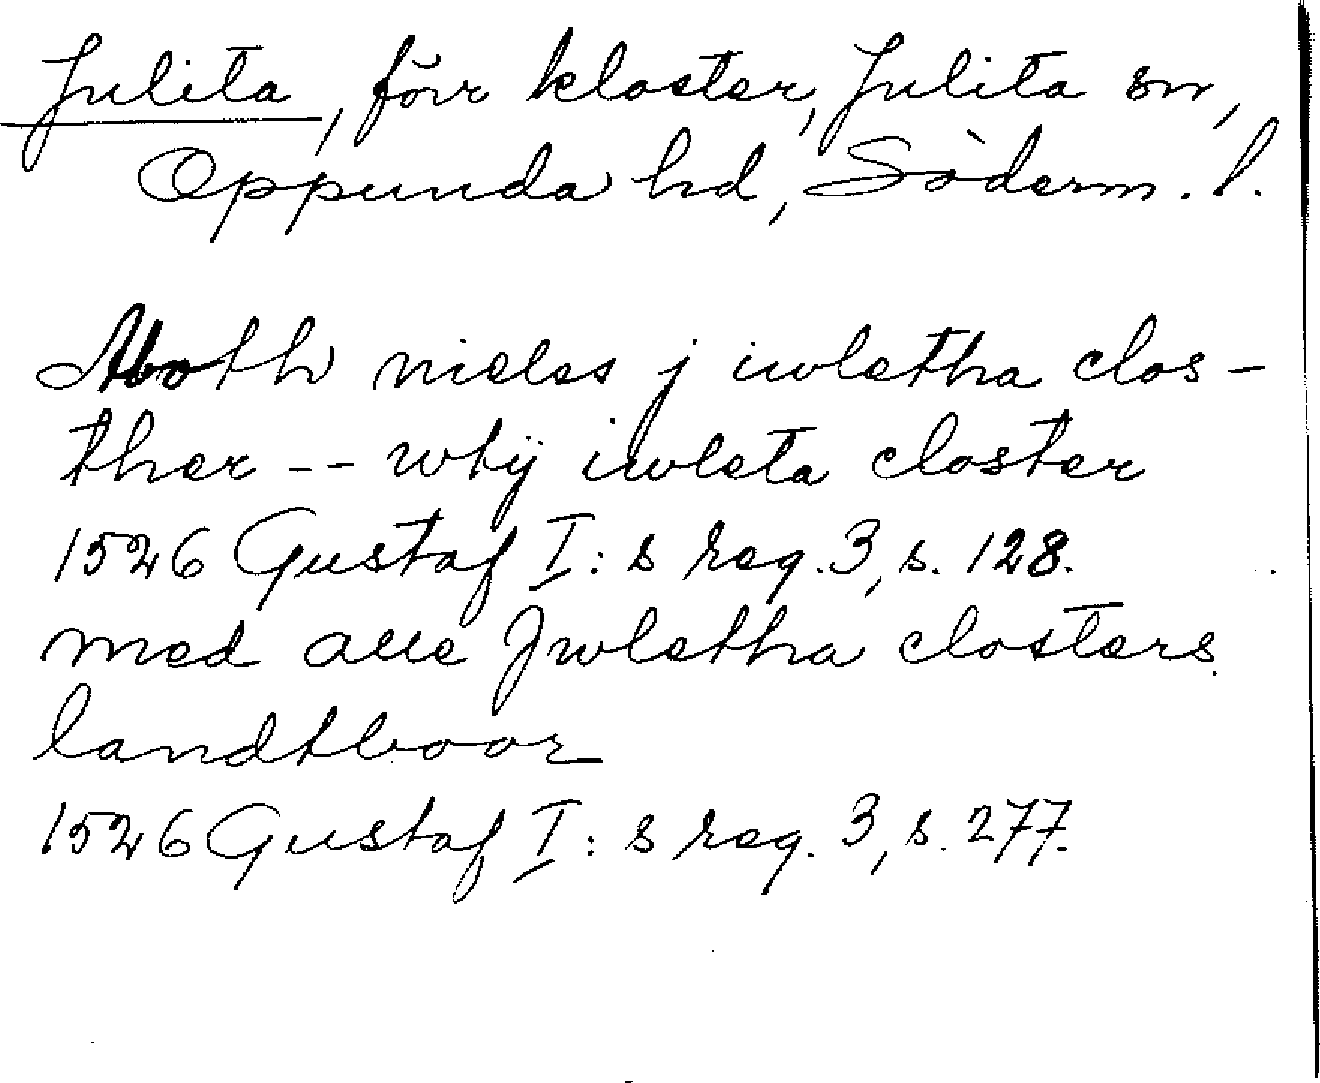 Julita, förr kloster, Julita sn,
Oppunda hd, Söderm. l.
Aboth nieles j iwletha clos-
ther -- wtÿ iwleta closter
1526 Gustaf I: s reg. 3, s. 128.
med alle Jwletha closters
landtboor
1526 Gustaf I: s reg. 3, s. 277.